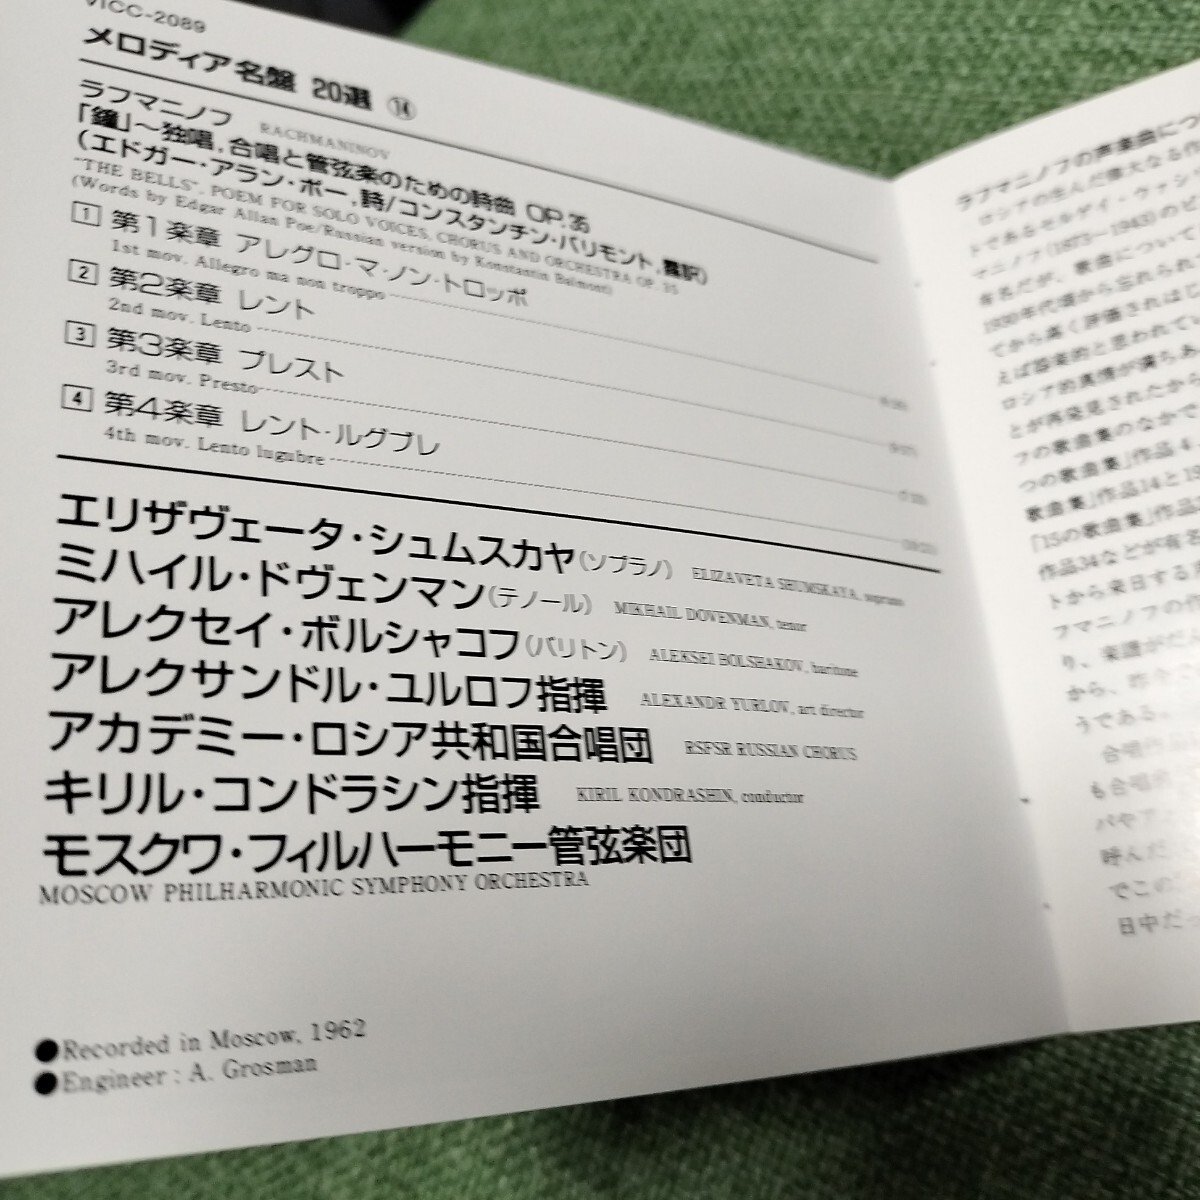 VICC-2089
メロディア名盤 20選 ⑭
ラフマニノフ RACHMANINOV
「鐘」〜独唱,合唱と管弦楽のための詩曲 OP.35
(エドガー・アラン・ポー,詩/コンスタンチン・バリモント,露訳)
"THE BELLS", POEM FOR SOLO VOICES, CHORUS AND ORCHESTRA OP. 35
(Words by Edgar Allan Poe/Russian version by Konstantin Balmont)
1 第1楽章 アレグロ・マ・ノン・トロッポ
1st mov. Allegro ma non troppo
2 第2楽章 レント
2nd mov. Lento
3 第3楽章 プレスト
3rd mov. Presto
4 第4楽章 レント・ルグブレ
4th mov. Lento lugubre
エリザヴェータ・シュムスカヤ(ソプラノ) ELIZAVETA SHUMSKAYA, soprano
ミハイル・ドヴェンマン(テノール) MIKHAIL DOVENMAN, tenor
アレクセイ・ボルシャコフ(バリトン) ALEKSEI BOLSHAKOV, baritone
アレクサンドル・ユルロフ指揮 ALEXANDR YURLOV, art director
アカデミー・ロシア共和国合唱団 RSFSR RUSSIAN CHORUS
キリル・コンドラシン指揮 KIRIL KONDRASHIN, conductor
モスクワ・フィルハーモニー管弦楽団
MOSCOW PHILHARMONIC SYMPHONY ORCHESTRA
●Recorded in Moscow, 1962
●Engineer : A. Grosman
ラフマニノフの声楽曲につ
ロシアの生んだ偉大なる作
トであるセルゲイ・ヴァシ
マニノフ(1873〜1943)のピ
有名だが、歌曲について
1930年代頃から忘れられて
てから高く評価されはじ
えば器楽的と思われてい
ロシア的真情が満ちあ
とが再発見されたから
フの歌曲集のなかで
つの歌曲集」作品4、
歌曲集」作品14と19
「15の歌曲集」作品
作品34などが有名
トから来日する
フマニノフの作
り、楽譜がだん
から、昨今で
うである。
合唱作品
も合唱
パやア
呼んだ
でこの
日中だっ